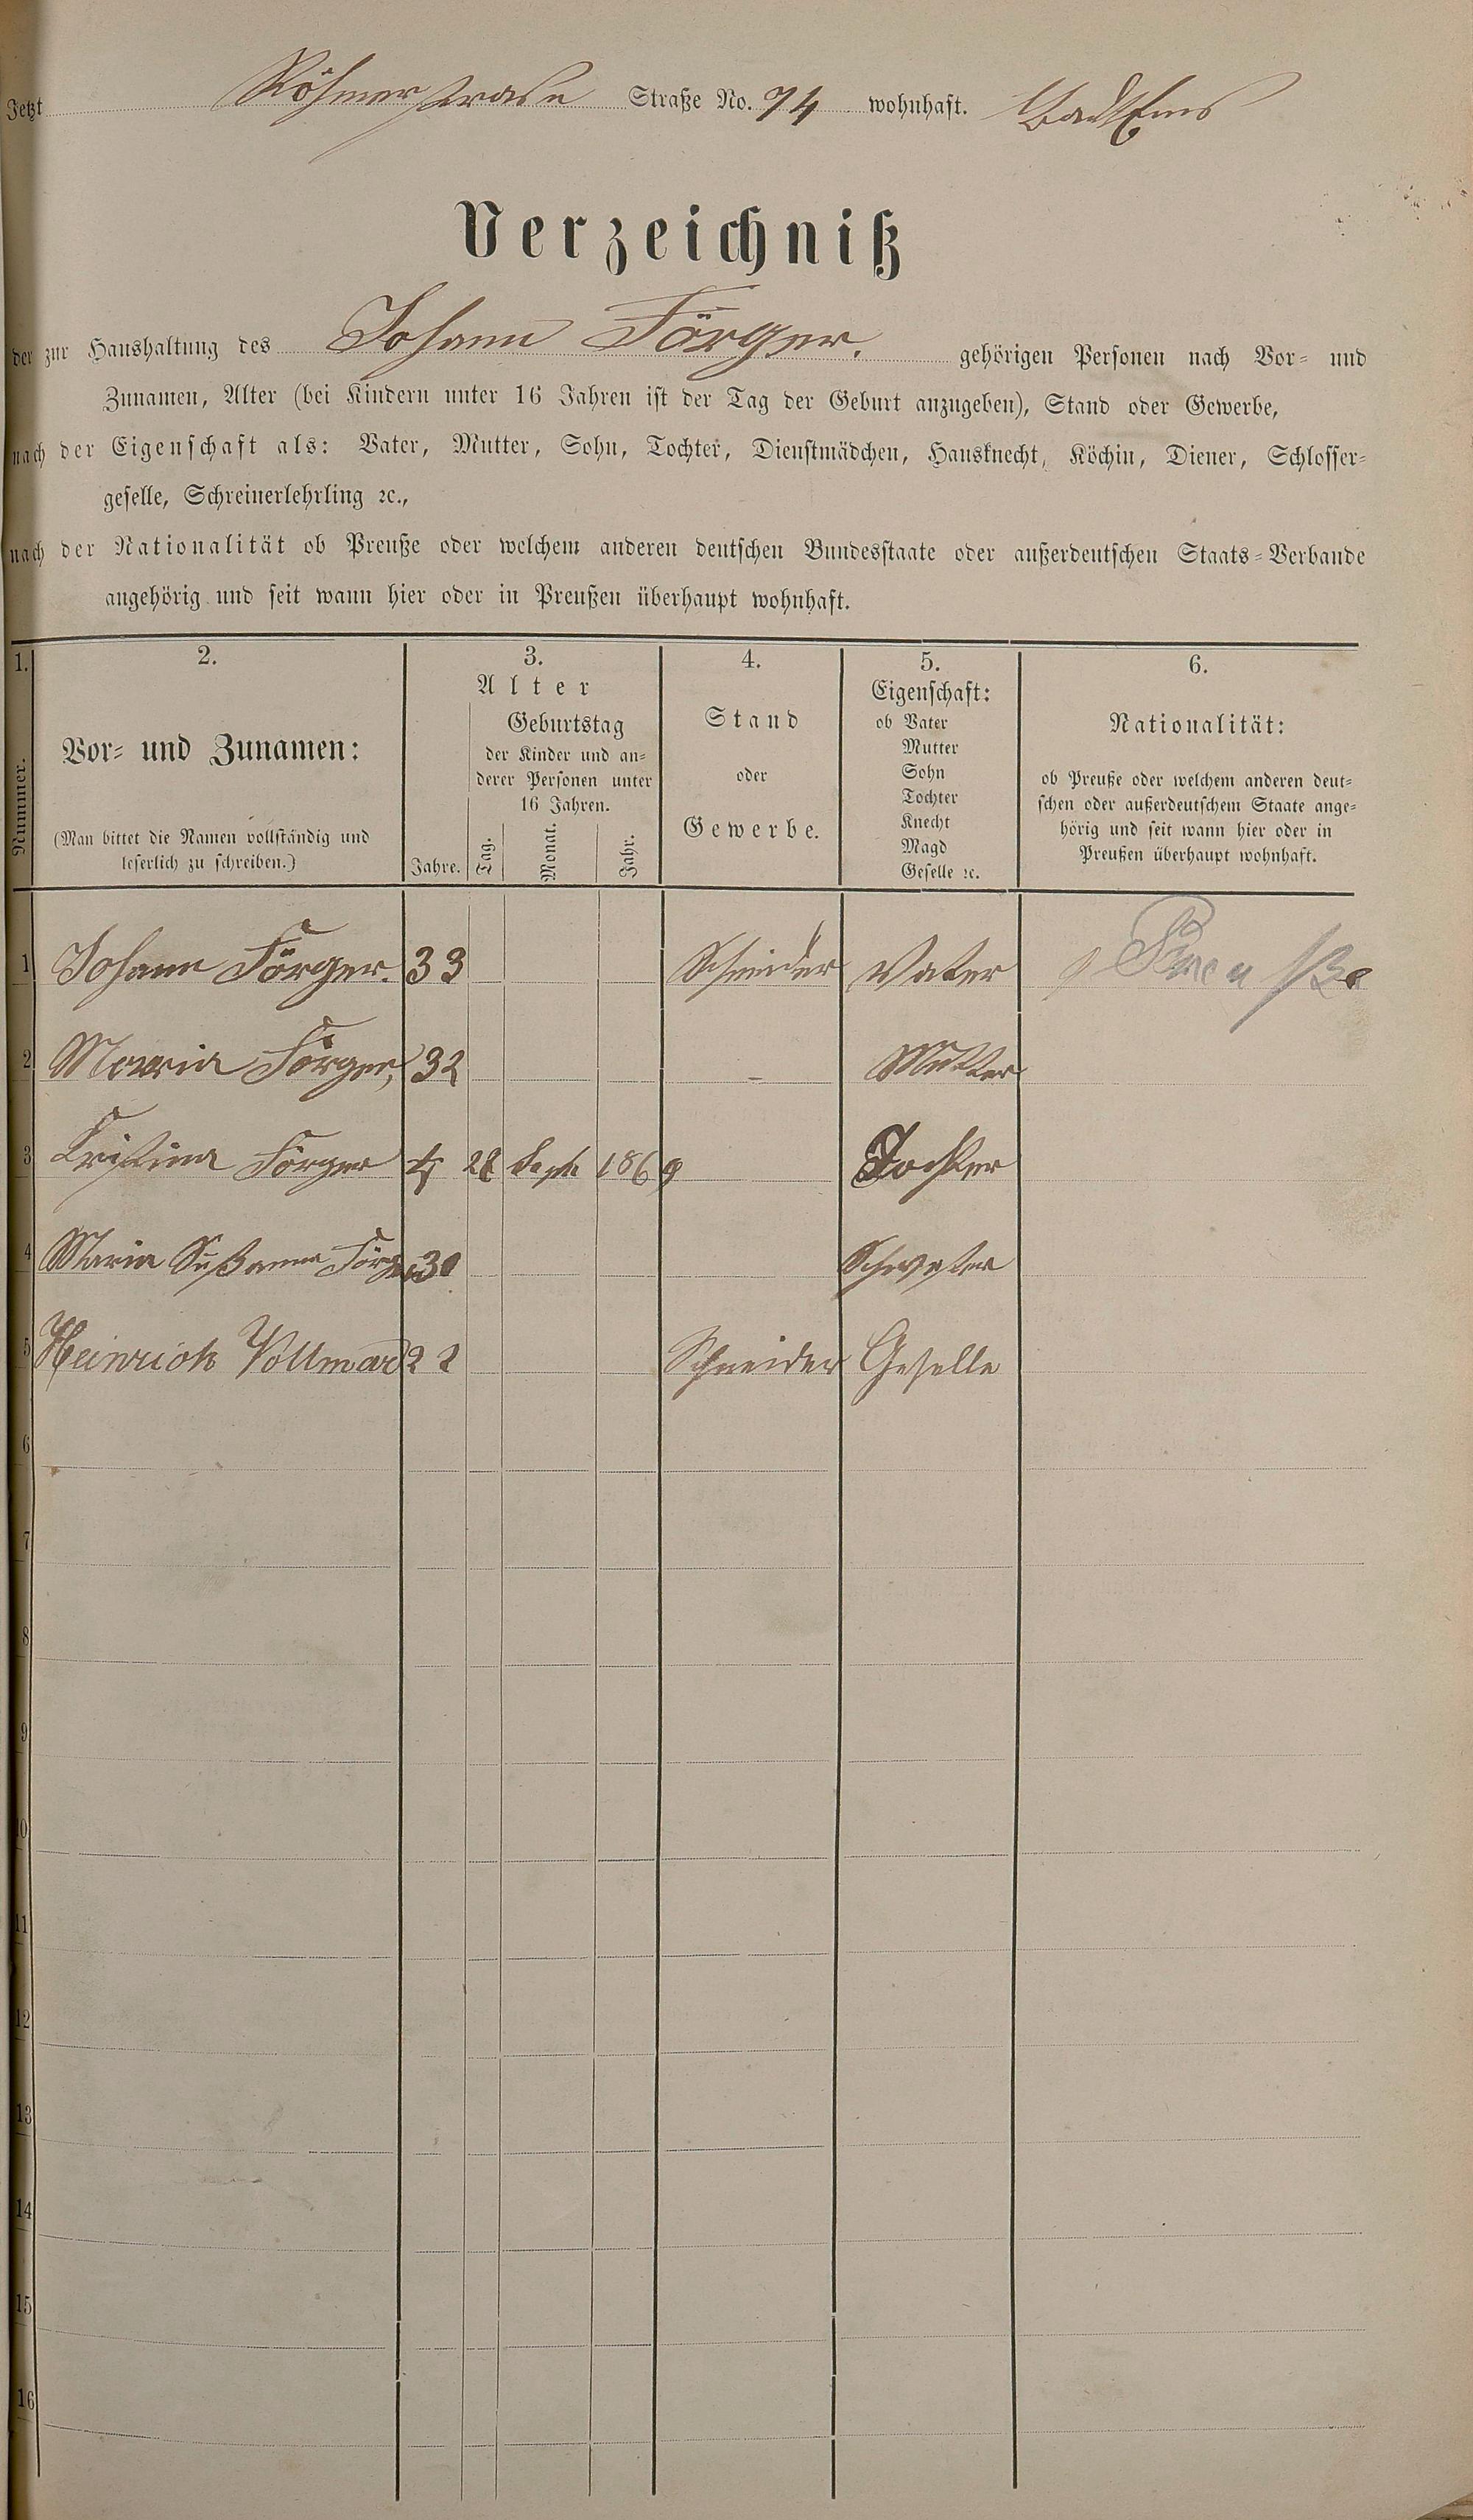 Jetzt Röhmerstrase Straße No. 74 wohnhaft. Bad Ems
Verzeichniß
der zur Haushaltung des Johann Förger. gehörigen Personen nach Vor- und
Zunamen, Alter (bei Kindern unter 16 Jahren ist der Tag der Geburt anzugeben), Stand oder Gewerbe,
nach der Eigenschaft als: Vater, Mutter, Sohn, Tochter, Dienstmädchen, Hausknecht, Köchin, Diener, Schlosser-
geselle, Schreinerlehrling ꝛc.,
nach der Nationalität ob Preuße oder welchem anderen deutschen Bundesstaate oder außerdeutschen Staats-Verbande
angehörig und seit wann hier oder in Preußen überhaupt wohnhaft.
1.
Nummer.
2.
Vor- und Zunamen:
(Man bittet die Namen vollständig und
leserlich zu schreiben.)
3.
Alter
Jahre.
Geburtstag
der Kinder und an-
derer Personen unter
16 Jahren.
Tag. Monat. Jahr.
4.
Stand
oder
Gewerbe.
5.
Eigenschaft:
ob Vater
Mutter
Sohn
Tochter
Knecht
Magd
Geselle ꝛc.
6.
Nationalität:
ob Preuße oder welchem anderen deut-
schen oder außerdeutschem Staate ange-
hörig und seit wann hier oder in
Preußen überhaupt wohnhaft.
1 Johann Förger. 33 Schnider Vater Preuße
2 Maria Förger, 32 – Mutter
3 Kristina Förger Sept 1869 Tochter
4 Maria Sußanna Förger 30 Schwester
5 Heinrich Vollmar 22 Schneider Geselle
6
7
8
9
10
11
12
13
14
15
16